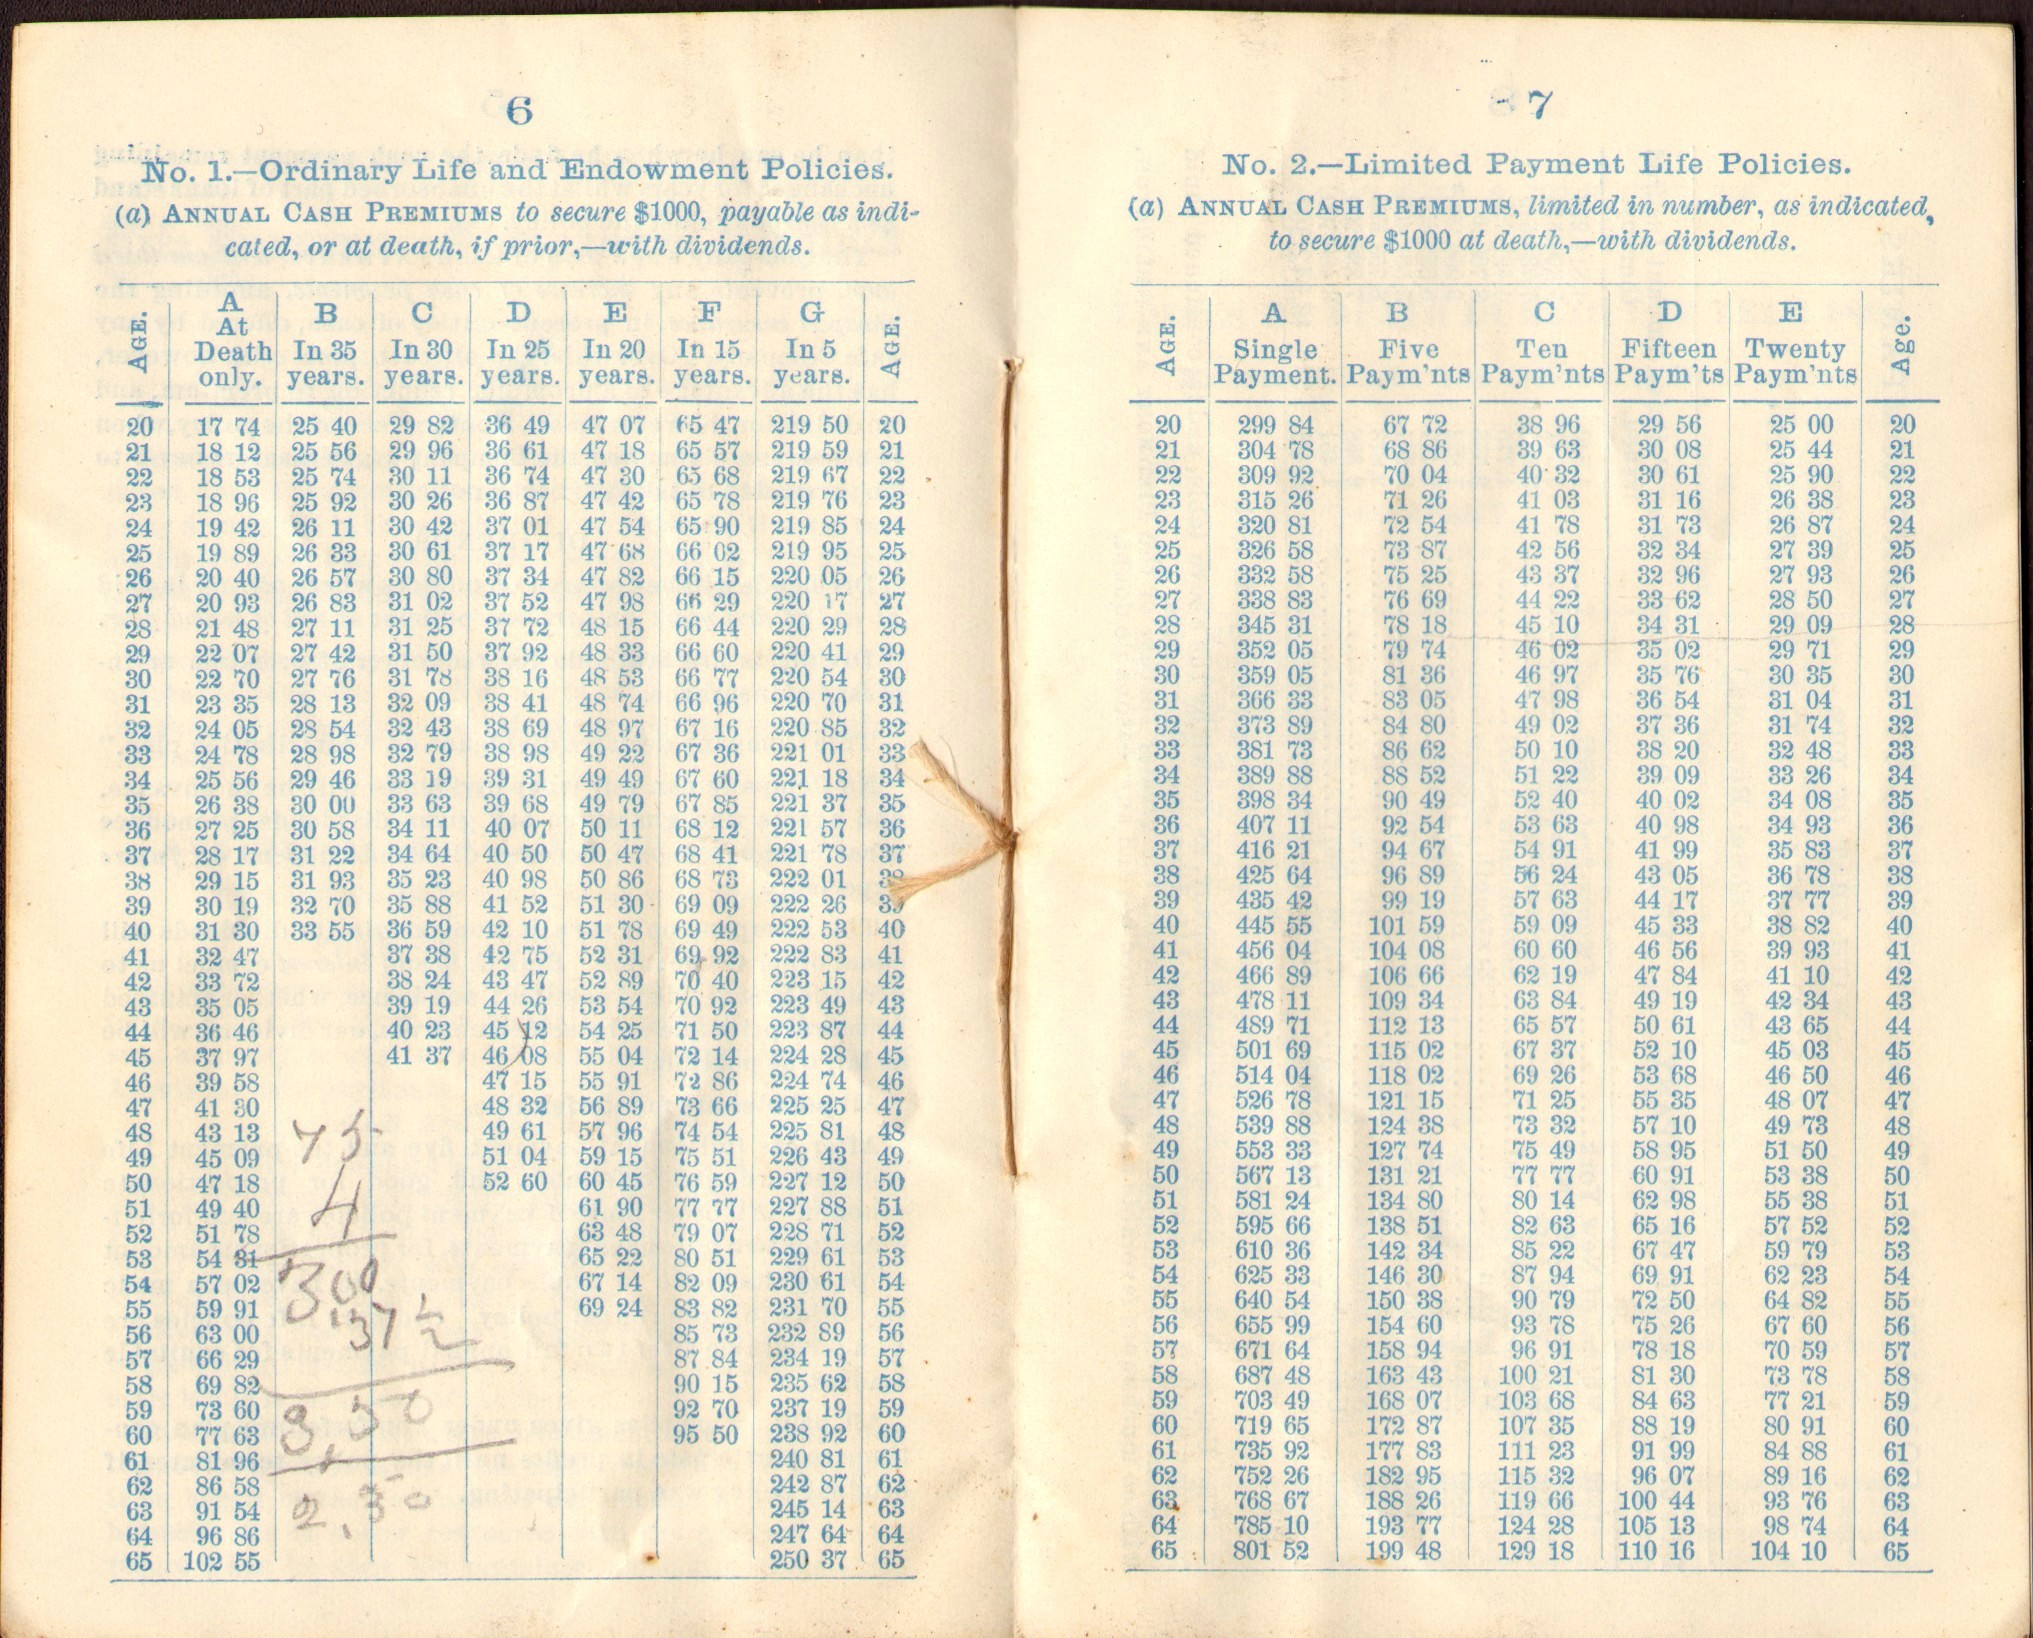 6
No. 1.—Ordinary Life and Endowment Policies.
(a) ANNUAL CASH PREMIUMS to secure $1000, payable as indi-
cated, or at death, if prior,—with dividends.
AGE. A At Death only. B In 35 years. C In 30 years. D In 25 years. E In 20 years. F In 15 years. G In 5 years. AGE.
20 17 74 25 40 29 82 36 49 47 07 65 47 219 50 20
21 18 12 25 56 29 96 36 61 47 18 65 57 219 59 21
22 18 53 25 74 30 11 36 74 47 30 65 68 219 67 22
23 18 96 25 92 30 26 36 87 47 42 65 78 219 76 23
24 19 42 26 11 30 42 37 01 47 54 65 90 219 85 24
25 19 89 26 33 30 61 37 17 47 68 66 02 219 95 25
26 20 40 26 57 30 80 37 34 47 82 66 15 220 05 26
27 20 93 26 83 31 02 37 52 47 98 66 29 220 17 27
28 21 48 27 11 31 25 37 72 48 15 66 44 220 29 28
29 22 07 27 42 31 50 37 92 48 33 66 60 220 41 29
30 22 70 27 76 31 78 38 16 48 53 66 77 220 54 30
31 23 35 28 13 32 09 38 41 48 74 66 96 220 70 31
32 24 05 28 54 32 43 38 69 48 97 67 16 220 85 32
33 24 78 28 98 32 79 38 98 49 22 67 36 221 01 33
34 25 56 29 46 33 19 39 31 49 49 67 60 221 18 34
35 26 38 30 00 33 63 39 68 49 79 67 85 221 37 35
36 27 25 30 58 34 11 40 07 50 11 68 12 221 57 36
37 28 17 31 22 34 64 40 50 50 47 68 41 221 78 37
38 29 15 31 93 35 23 40 98 50 86 68 73 222 01 38
39 30 19 32 70 35 88 41 52 51 30 69 09 222 26 39
40 31 30 33 55 36 59 42 10 51 78 69 49 222 53 40
41 32 47 37 38 42 75 52 31 69 92 222 83 41
42 33 72 38 24 43 47 52 89 70 40 223 15 42
43 35 05 39 19 44 26 53 54 70 92 223 49 43
44 36 46 40 23 45 12 54 25 71 50 223 87 44
45 37 97 41 37 46 08 55 04 72 14 224 28 45
46 39 58 47 15 55 91 72 86 224 74 46
47 41 30 48 32 56 89 73 66 225 25 47
48 43 13 49 61 57 96 74 54 225 81 48
49 45 09 51 04 59 15 75 51 226 43 49
50 47 18 52 60 60 45 76 59 227 12 50
51 49 40 61 90 77 77 227 88 51
52 51 78 63 48 79 07 228 71 52
53 54 31 65 22 80 51 229 61 53
54 57 02 67 14 82 09 230 61 54
55 59 91 69 24 83 82 231 70 55
56 63 00 85 73 232 89 56
57 66 29 87 84 234 19 57
58 69 82 90 15 235 62 58
59 73 60 92 70 237 19 59
60 77 63 95 50 238 92 60
61 81 96 240 81 61
62 86 58 242 87 62
63 91 54 245 14 63
64 96 86 247 64 64
65 102 55 250 37 65
75
4
300
.37 1/2
2.30
7
No. 2.—Limited Payment Life Policies.
(a) ANNUAL CASH PREMIUMS, limited in number, as indicated,
to secure $1000 at death,—with dividends.
AGE. A Single Payment. B Five Paym'nts C Ten Paym'nts D Fifteen Paym'ts E Twenty Paym'nts Age.
20 299 84 67 72 38 96 29 56 25 00 20
21 304 78 68 86 39 63 30 08 25 44 21
22 309 92 70 04 40 32 30 61 25 90 22
23 315 26 71 26 41 03 31 16 26 38 23
24 320 81 72 54 41 78 31 73 26 87 24
25 326 58 73 87 42 56 32 34 27 39 25
26 332 58 75 25 43 37 32 96 27 93 26
27 338 83 76 69 44 22 33 62 28 50 27
28 345 31 78 18 45 10 34 31 29 09 28
29 352 05 79 74 46 02 35 02 29 71 29
30 359 05 81 36 46 97 35 76 30 35 30
31 366 33 83 05 47 98 36 54 31 04 31
32 373 89 84 80 49 02 37 36 31 74 32
33 381 73 86 62 50 10 38 20 32 48 33
34 389 88 88 52 51 22 39 09 33 26 34
35 398 34 90 49 52 40 40 02 34 08 35
36 407 11 92 54 53 63 40 98 34 93 36
37 416 21 94 67 54 91 41 99 35 83 37
38 425 64 96 89 56 24 43 05 36 78 38
39 435 42 99 19 57 63 44 17 37 77 39
40 445 55 101 59 59 09 45 33 38 82 40
41 456 04 104 08 60 60 46 56 39 93 41
42 466 89 106 66 62 19 47 84 41 10 42
43 478 11 109 34 63 84 49 19 42 34 43
44 489 71 112 13 65 57 50 61 43 65 44
45 501 69 115 02 67 37 52 10 45 03 45
46 514 04 118 02 69 26 53 68 46 50 46
47 526 78 121 15 71 25 55 35 48 07 47
48 539 88 124 38 73 32 57 10 49 73 48
49 553 33 127 74 75 49 58 95 51 50 49
50 567 13 131 21 77 77 60 91 53 38 50
51 581 24 134 80 80 14 62 98 55 38 51
52 595 66 138 51 82 63 65 16 57 52 52
53 610 36 142 34 85 22 67 47 59 79 53
54 625 33 146 30 87 94 69 91 62 23 54
55 640 54 150 38 90 79 72 50 64 82 55
56 655 99 154 60 93 78 75 26 67 60 56
57 671 64 158 94 96 91 78 18 70 59 57
58 687 48 163 43 100 21 81 30 73 78 58
59 703 49 168 07 103 68 84 63 77 21 59
60 719 65 172 87 107 35 88 19 80 91 60
61 735 92 177 83 111 23 91 99 84 88 61
62 752 26 182 95 115 32 96 07 89 16 62
63 768 67 188 26 119 66 100 44 93 76 63
64 785 10 193 77 124 28 105 13 98 74 64
65 801 52 199 48 129 18 110 16 104 10 65